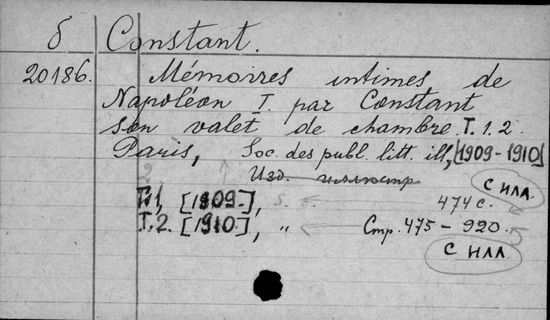 б Constant.
20186. Mémoires intimes de
Napoléon I. par Constant
son valet de chambre. T. 1. 2.
Paris, Soc. des publ. litt. ill., [1909-1910]
Изд. иллюстр.
с илл.
T. 1, [1909], 474 с.
T. 2. [1910], „ Стр. 475 - 920.
с илл.